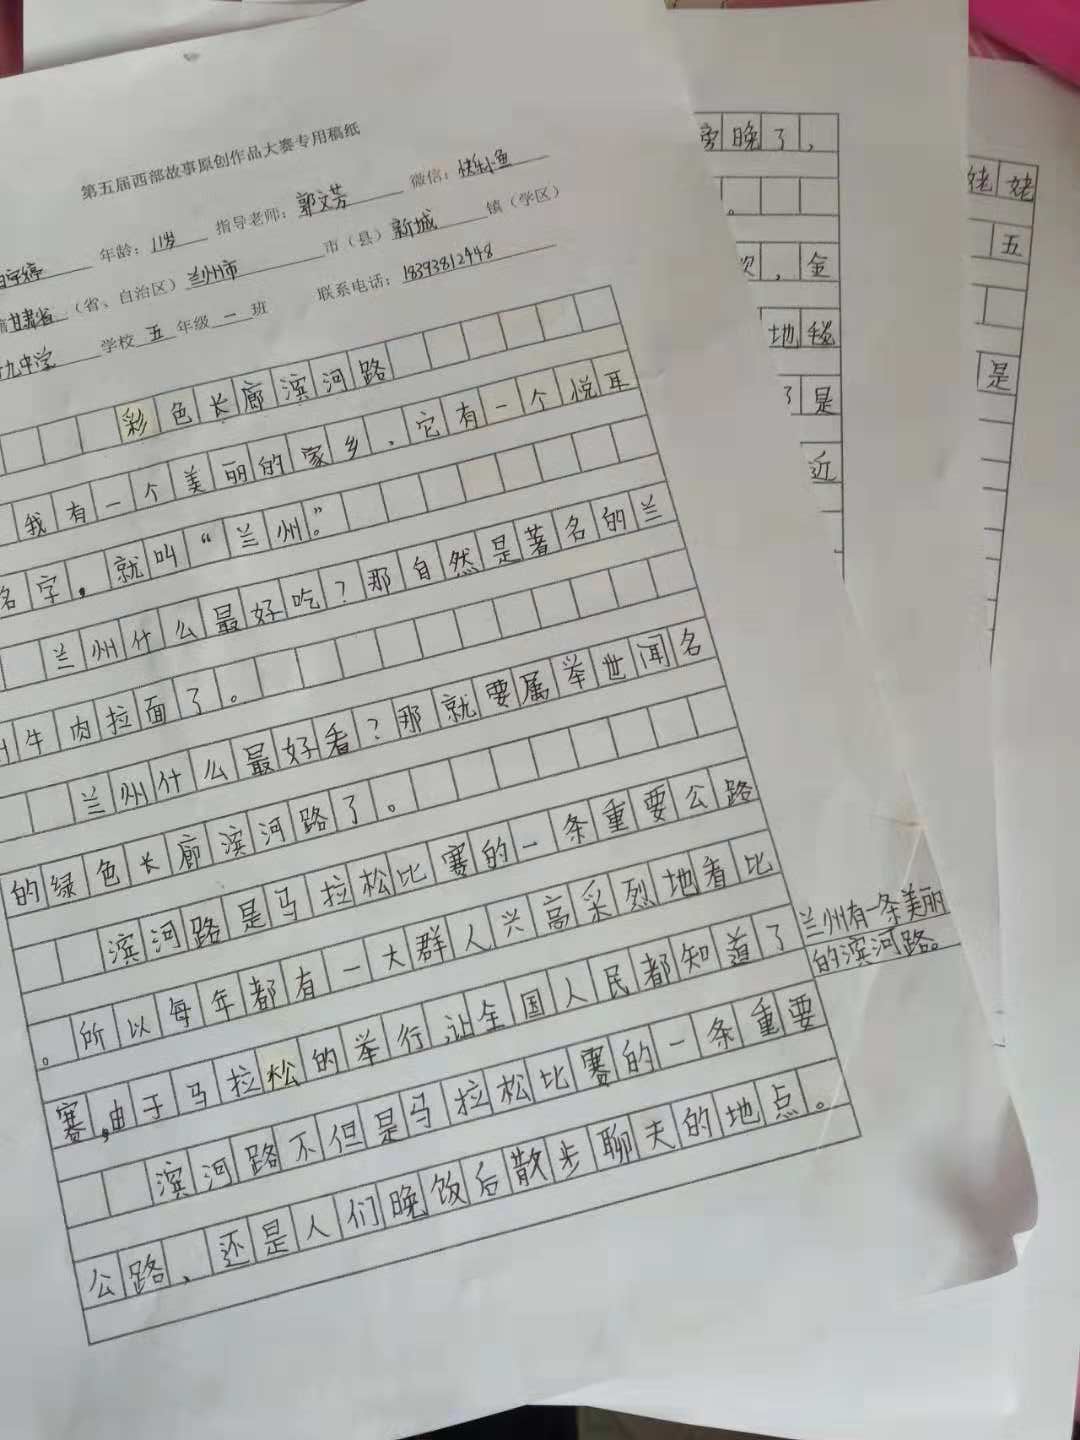 第五届西部故事原创作品大赛专用稿纸
年龄：11岁 指导老师：郭文芳 微信：快乐小鱼
甘肃省（省、自治区）兰州市 市（县）新城 镇（学区）
九中学 学校 五 年级 一 班 联系电话：18393812448
彩色长廊滨河路
我有一个美丽的家乡，它有一个悦耳
名字，就叫“兰州”。
兰州什么最好吃？那自然是著名的兰
牛肉拉面了。
兰州什么最好看？那就要属举世闻名
的绿色长廊滨河路了。
滨河路是马拉松比赛的一条重要公路
。所以每年都有一大群人兴高采烈地看比
赛，由于马拉松的举行，让全国人民都知道了
兰州有一条美丽
的滨河路。
滨河路不但是马拉松比赛的一条重要
公路、还是人们晚饭后散步聊天的地点。
晚了，
。
，金
地毯
了是
近
姥
五
是